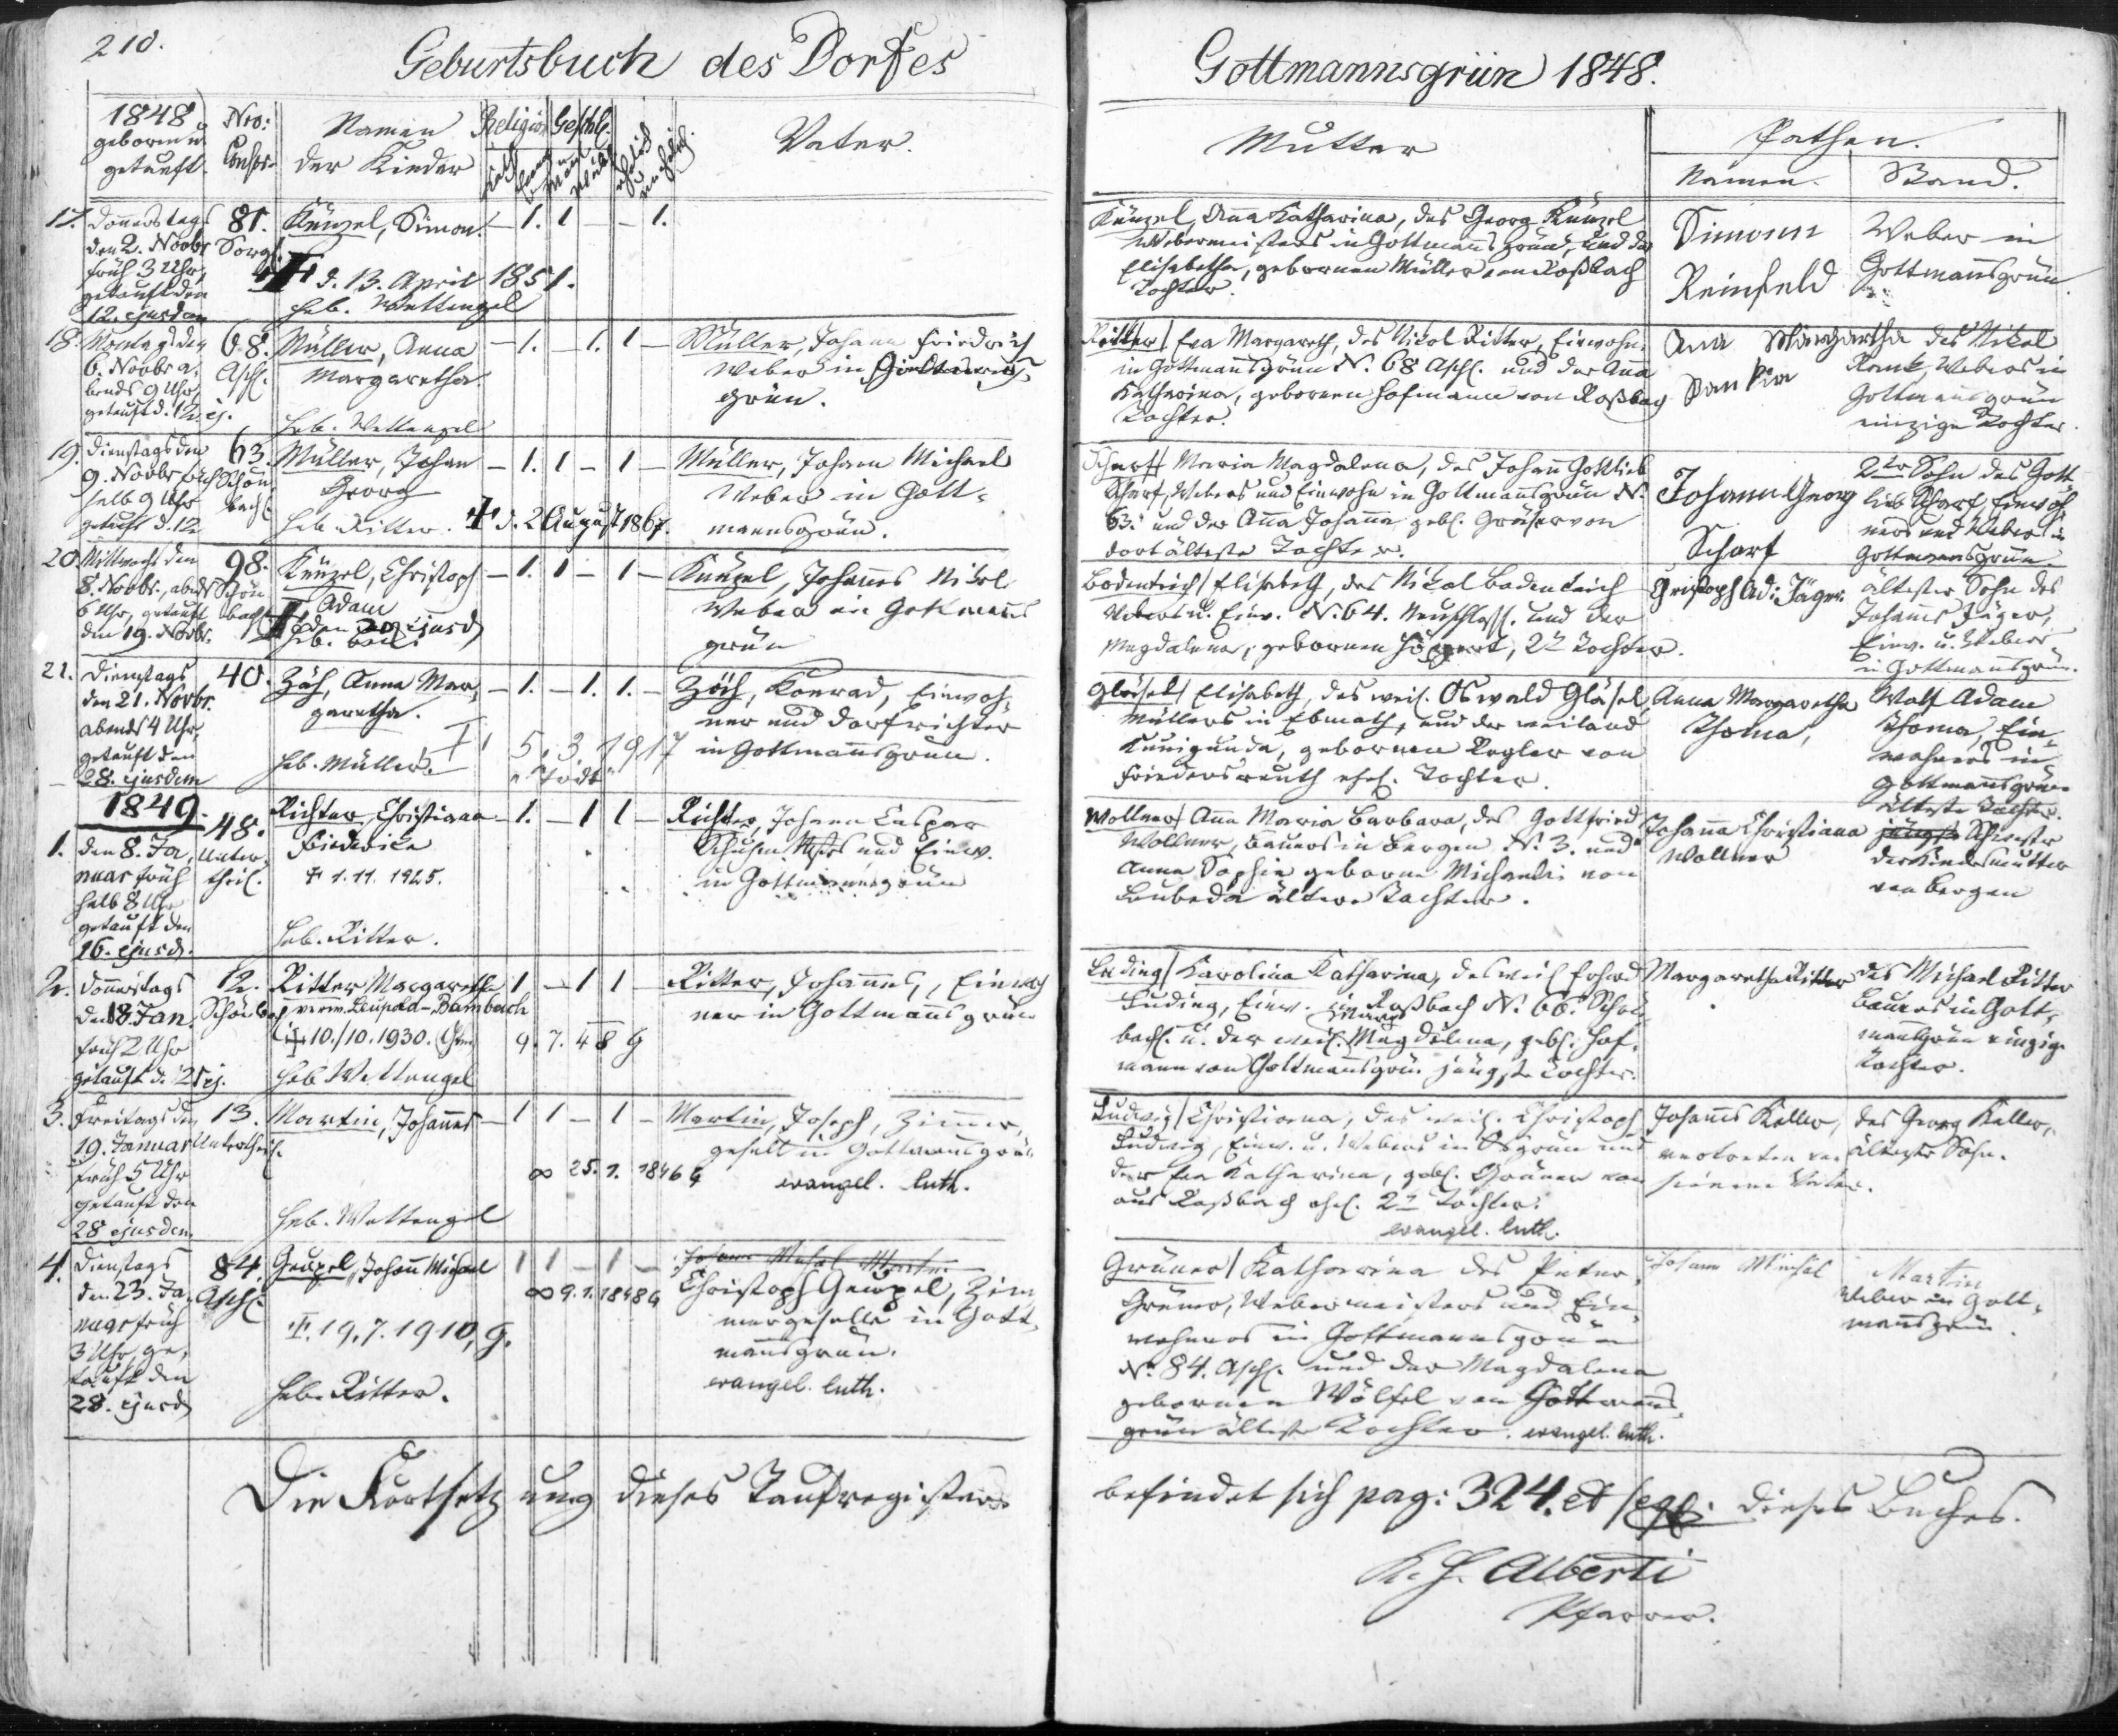 210.
Geburtsbuch des Dorfes
Gottmannsgrün 1848.
1848
geboren u.
getauft.
Nro:
Conscr.
Namen
der Kinder
Religion
Geschl.
Vater.
Mutter
Pathen.
Namen.
Stand.
17. Donnerstags
den 2. Novbr
früh 3 Uhr,
getauft den
12. ejusdem
81.
Sorg.
Künzel, Simon.
– 1. 1 – – 1.
d. 13. April 1851.
Heb. Wettengel
Künzel, Anna Katharina, des Georg Künzel
Webermeisters in Gottmannsgrün, und der
Elisabetha, gebornen Müller von Roßbach
Tochter.
Simonn
Reinfeld
Weber in
Gottmannsgrün.
18. Montags den
6. Novbr a-
bends 9 Uhr,
getauft d. 12. ej.
68.
Asch.
Müller, Anna
Margaretha.
Heb. Wettengel
– 1. – 1. 1 –
Müller, Johann Friedrich
Weber in Gottmanns-
grün.
Ritter / Eva Margareth, des Nikol Ritter, Einwohn.
in Gottmannsgrün N. 68 Asch. und der Anna
Katharina, gebornen Hofmann von Roßbach
Tochter.
Anna Margaretha
des Nikol
Webers in
Gottmannsgrün
einzige Tochter.
19. Dienstags den
9. Novbr früh
halb 9 Uhr
getauft d. 12
63.
Schön-
bach.
Müller, Johan
Georg
Heb. Ritter.
– 1. 1 – 1 –
d. 2 August 1867.
Müller, Johann Michael
Weber in Gott-
mannsgrün.
Scharf / Maria Magdalena, des Johann Gottlieb
Scharf, Webers und Einwohn in Gottmannsgrün N.
63. und der Anna Johanna geb. von
dort älteste Tochter.
Johann Georg
Scharf
2ter Sohn des Gott-
lieb Scharf, Einwoh-
ners und Webers in
Gottmannsgrün.
20. Mittwochs den
8. Novbr, abends
6 Uhr, getauft
den 19. Novbr.
98.
Schön-
bach
Künzel, Christoph
Adam
den ejusd
Heb.
– 1. 1 – 1 –
Künzel, Johannes Nikol
Weber in Gottmanns-
grün
Bodenteich / Elisabeth, des Nikol Bodenteich
Webers u. Einw. N. 64. Neuschloss. und der
Magdalena, gebornen 2te Tochter.
Christoph Ad: Jäger.
ältester Sohn des
Johannes Jäger,
Einw. u. Webers
in Gottmannsgrün.
21. Dienstags
den 21. Novbr.
abends 4 Uhr,
getauft den
28. ejusdem
40.
Zäh, Anna Mar-
garetha.
Heb. Müller.
– 1. – 1. 1. –
5. 3. 1917
Zäh, Konrad, Einwoh-
ner und Dorfrichter
in Gottmannsgrün.
Gläsel / Elisabeth, des weil. Oswald Gläsel,
Müllers in Ebmath, und der weiland
Kunigunda, gebornen Rogler von
Friedersreuth ehel. Tochter.
Anna Margaretha
Thoma,
Wolf Adam
Thoma, Ein-
wohners in
Gottmannsgrün
älteste Tochter.
1849.
1. den 8. Ja-
nuar früh
halb 8 Uhr
getauft den
16. ejusd.
48.
Unter-
theil.
Richter, Christiana
Friederike
1.11.1925.
Heb. Ritter.
– 1. – 1 1 –
Richter, Johann Caspar
Schuhm. Mstrs und Einw.
in Gottmannsgrün
Wollner / Anna Maria Barbara, des Gottfried
Wollner, Bauers in Bergen N. 3. und
Anna Sophia geborne Michaelis von
ältere Tochter.
Johanna Christiana
Wollner
jüngste Schwester
der Kindesmutter
von Bergen
2. Donnerstags
den 18. Jan.
früh 2 Uhr
getauft d. 21 ej.
12.
Schönbach
Ritter Margaretha
verw. Leupold-Bambach
10./10.1930.
Heb Wettengel
1 – 1 1 –
9. 7. 48 G
Ritter, Johannes, Einwoh-
ner in Gottmannsgrün
Luding / Karolina Katharina, des weil
Luding, Einw. in Roßbach N. 66. Schön-
bach. u. der weil. Magdalena, geb. Hof-
mann von Gottmannsgrün jüngste Tochter.
Margaretha Ritter
des Michael Ritter
Bauers in Gott-
mannsgrün einzige
Tochter.
3. Freitags den
19. Januar
früh 5 Uhr
getauft den
28 ejusdem
13.
Untertheil.
Martin, Johannes
Heb. Wettengel
– 1 1 – 1 –
∞ 25. 1. 1846 G
Martin, Joseph, Zimmer-
gesell in Gottmannsgrün
evangel. luth.
Ludwig / Christiana, des weil. Christoph
Ludwig, Einw. u. Webers in und
der Eva Katharina, geb. Grüner von
aus Roßbach ehel. 2te Tochter.
evangel. luth.
Johannes Keller,
vertreten von
seinem Vater.
des Georg Keller,
ältester Sohn.
4. Dienstags
den 23. Ja-
nuar früh
3 Uhr, ge-
tauft den
28. ejusd
84.
Asch.
Geupel, Johann Michael
19.7.1910, G.
Heb. Ritter.
1 1 – 1 –
∞ 9. 1. 1848 G
Christoph Geupel, Zim-
mergeselle in Gott-
mannsgrün.
evangel. luth.
Grüner / Katharina des Peter
Grüner, Webermeisters und Ein-
wohners in Gottmannsgrün
N. 84. Asch. und der Magdalena
gebornen Wölfel von Gottmanns-
grün älteste Tochter. evangel. luth.
Johann Michäl
Martin
Weber in Gott-
mannsgrün.
Die Fortsetzung dieses Taufregisters
befindet sich pag: 324. et seqq. dieses Buches.
K. H. Alberti
Pfarrer.